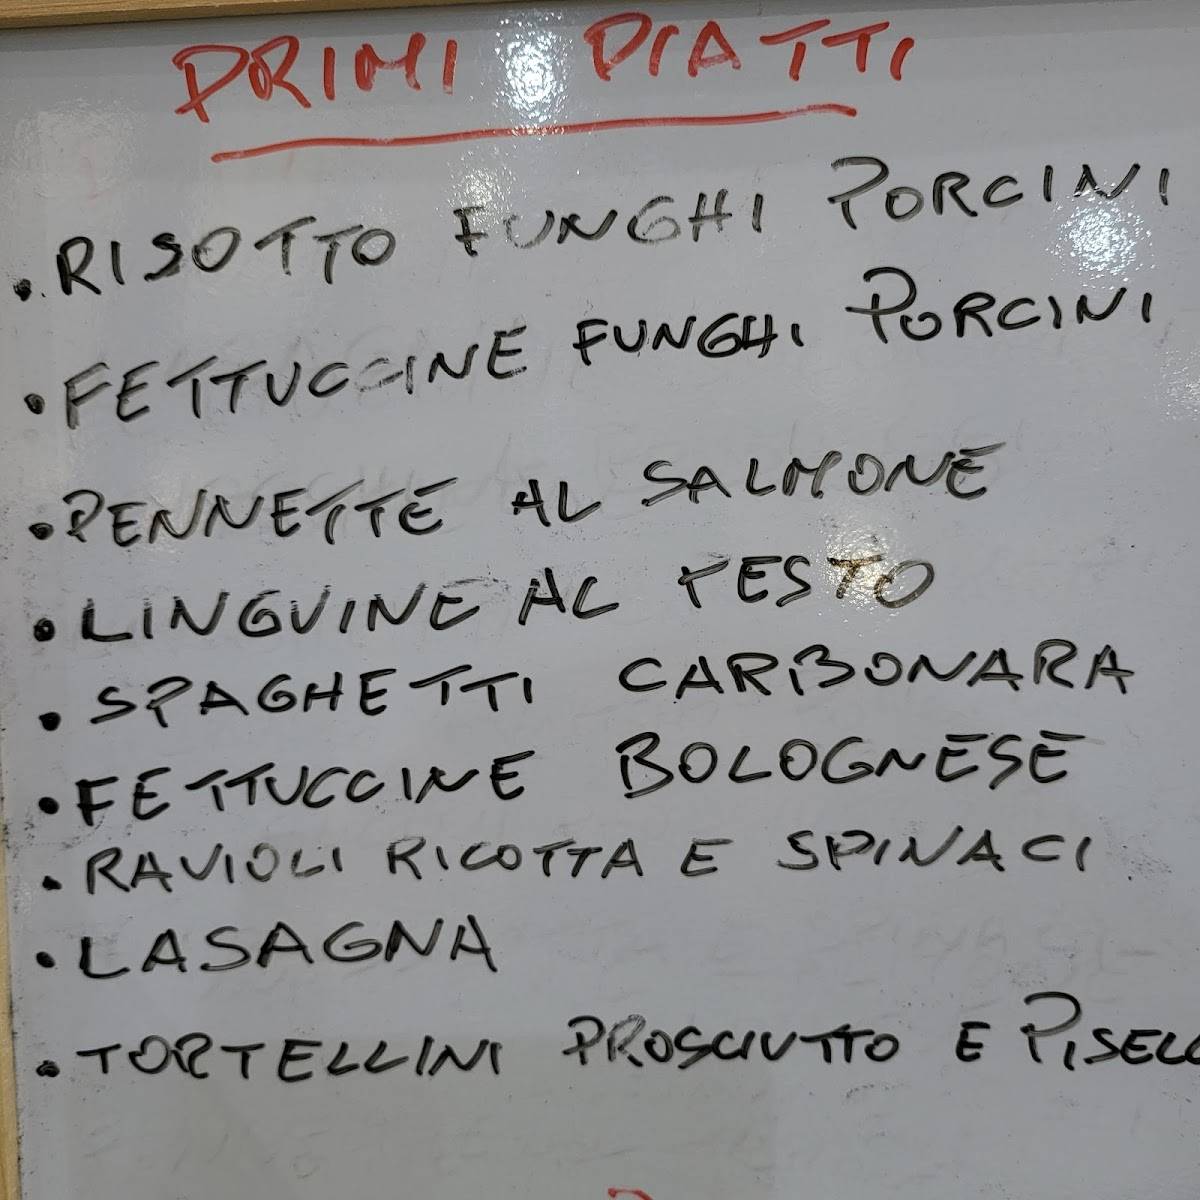 PRIMI PIATTI
• RISOTTO FUNGHI PORCINI
• FETTUCCINE FUNGHI PORCINI
• PENNETTE AL SALMONE
• LINGUINE AL PESTO
• SPAGHETTI CARBONARA
• FETTUCCINE BOLOGNESE
• RAVIOLI RICOTTA E SPINACI
• LASAGNA
• TORTELLINI PROSCIUTTO E